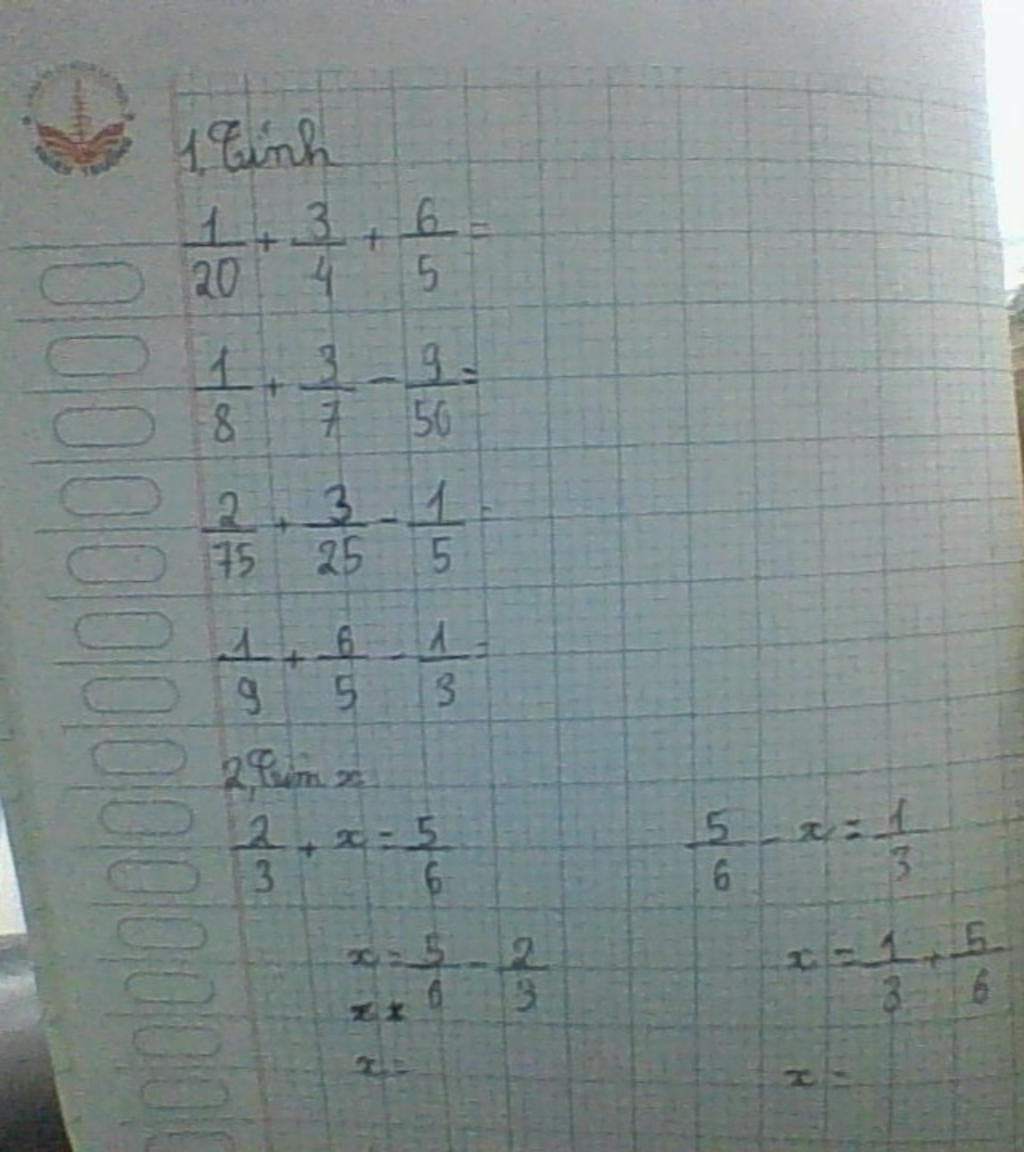 1, Tính
1/20 + 3/4 + 6/5 =
1/8 + 3/7 - 9/56 =
2/75 + 3/25 - 1/5 =
1/9 + 6/5 - 1/3 =
2, Tìm x
2/3 + x = 5/6    5/6 - x = 1/3
x = 5/6 - 2/3    x = 1/3 + 5/6
x =    x =